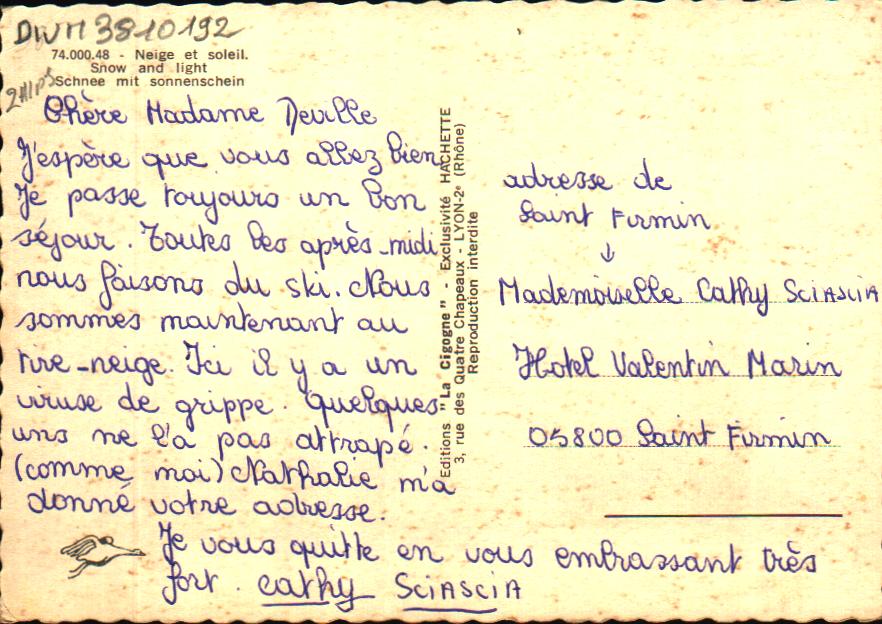 DWM 3810192
74.000.48 - Neige et soleil.
Snow and light
Schnee mit sonnenschein
2Alps
Chère Madame Deville
J'espère que vous allez bien
Je passe toujours un bon
séjour. Toutes les après-midi
nous faisons du ski. Nous
sommes maintenant au
tire-neige. Ici il y a un
viruse de grippe. Quelques
uns ne l'a pas attrapé.
(comme moi) Nathalie m'a
donné votre adresse.
Je vous quitte en vous embrassant très
fort. cathy SCIASCIA
Editions "La Cigogne" - Exclusivité HACHETTE
3, rue des Quatre Chapeaux - LYON-2e (Rhône)
Reproduction interdite
adresse de
Saint Firmin
↓
Mademoiselle Cathy SCIASCIA
Hotel Valentin Marin
05800 Saint Firmin